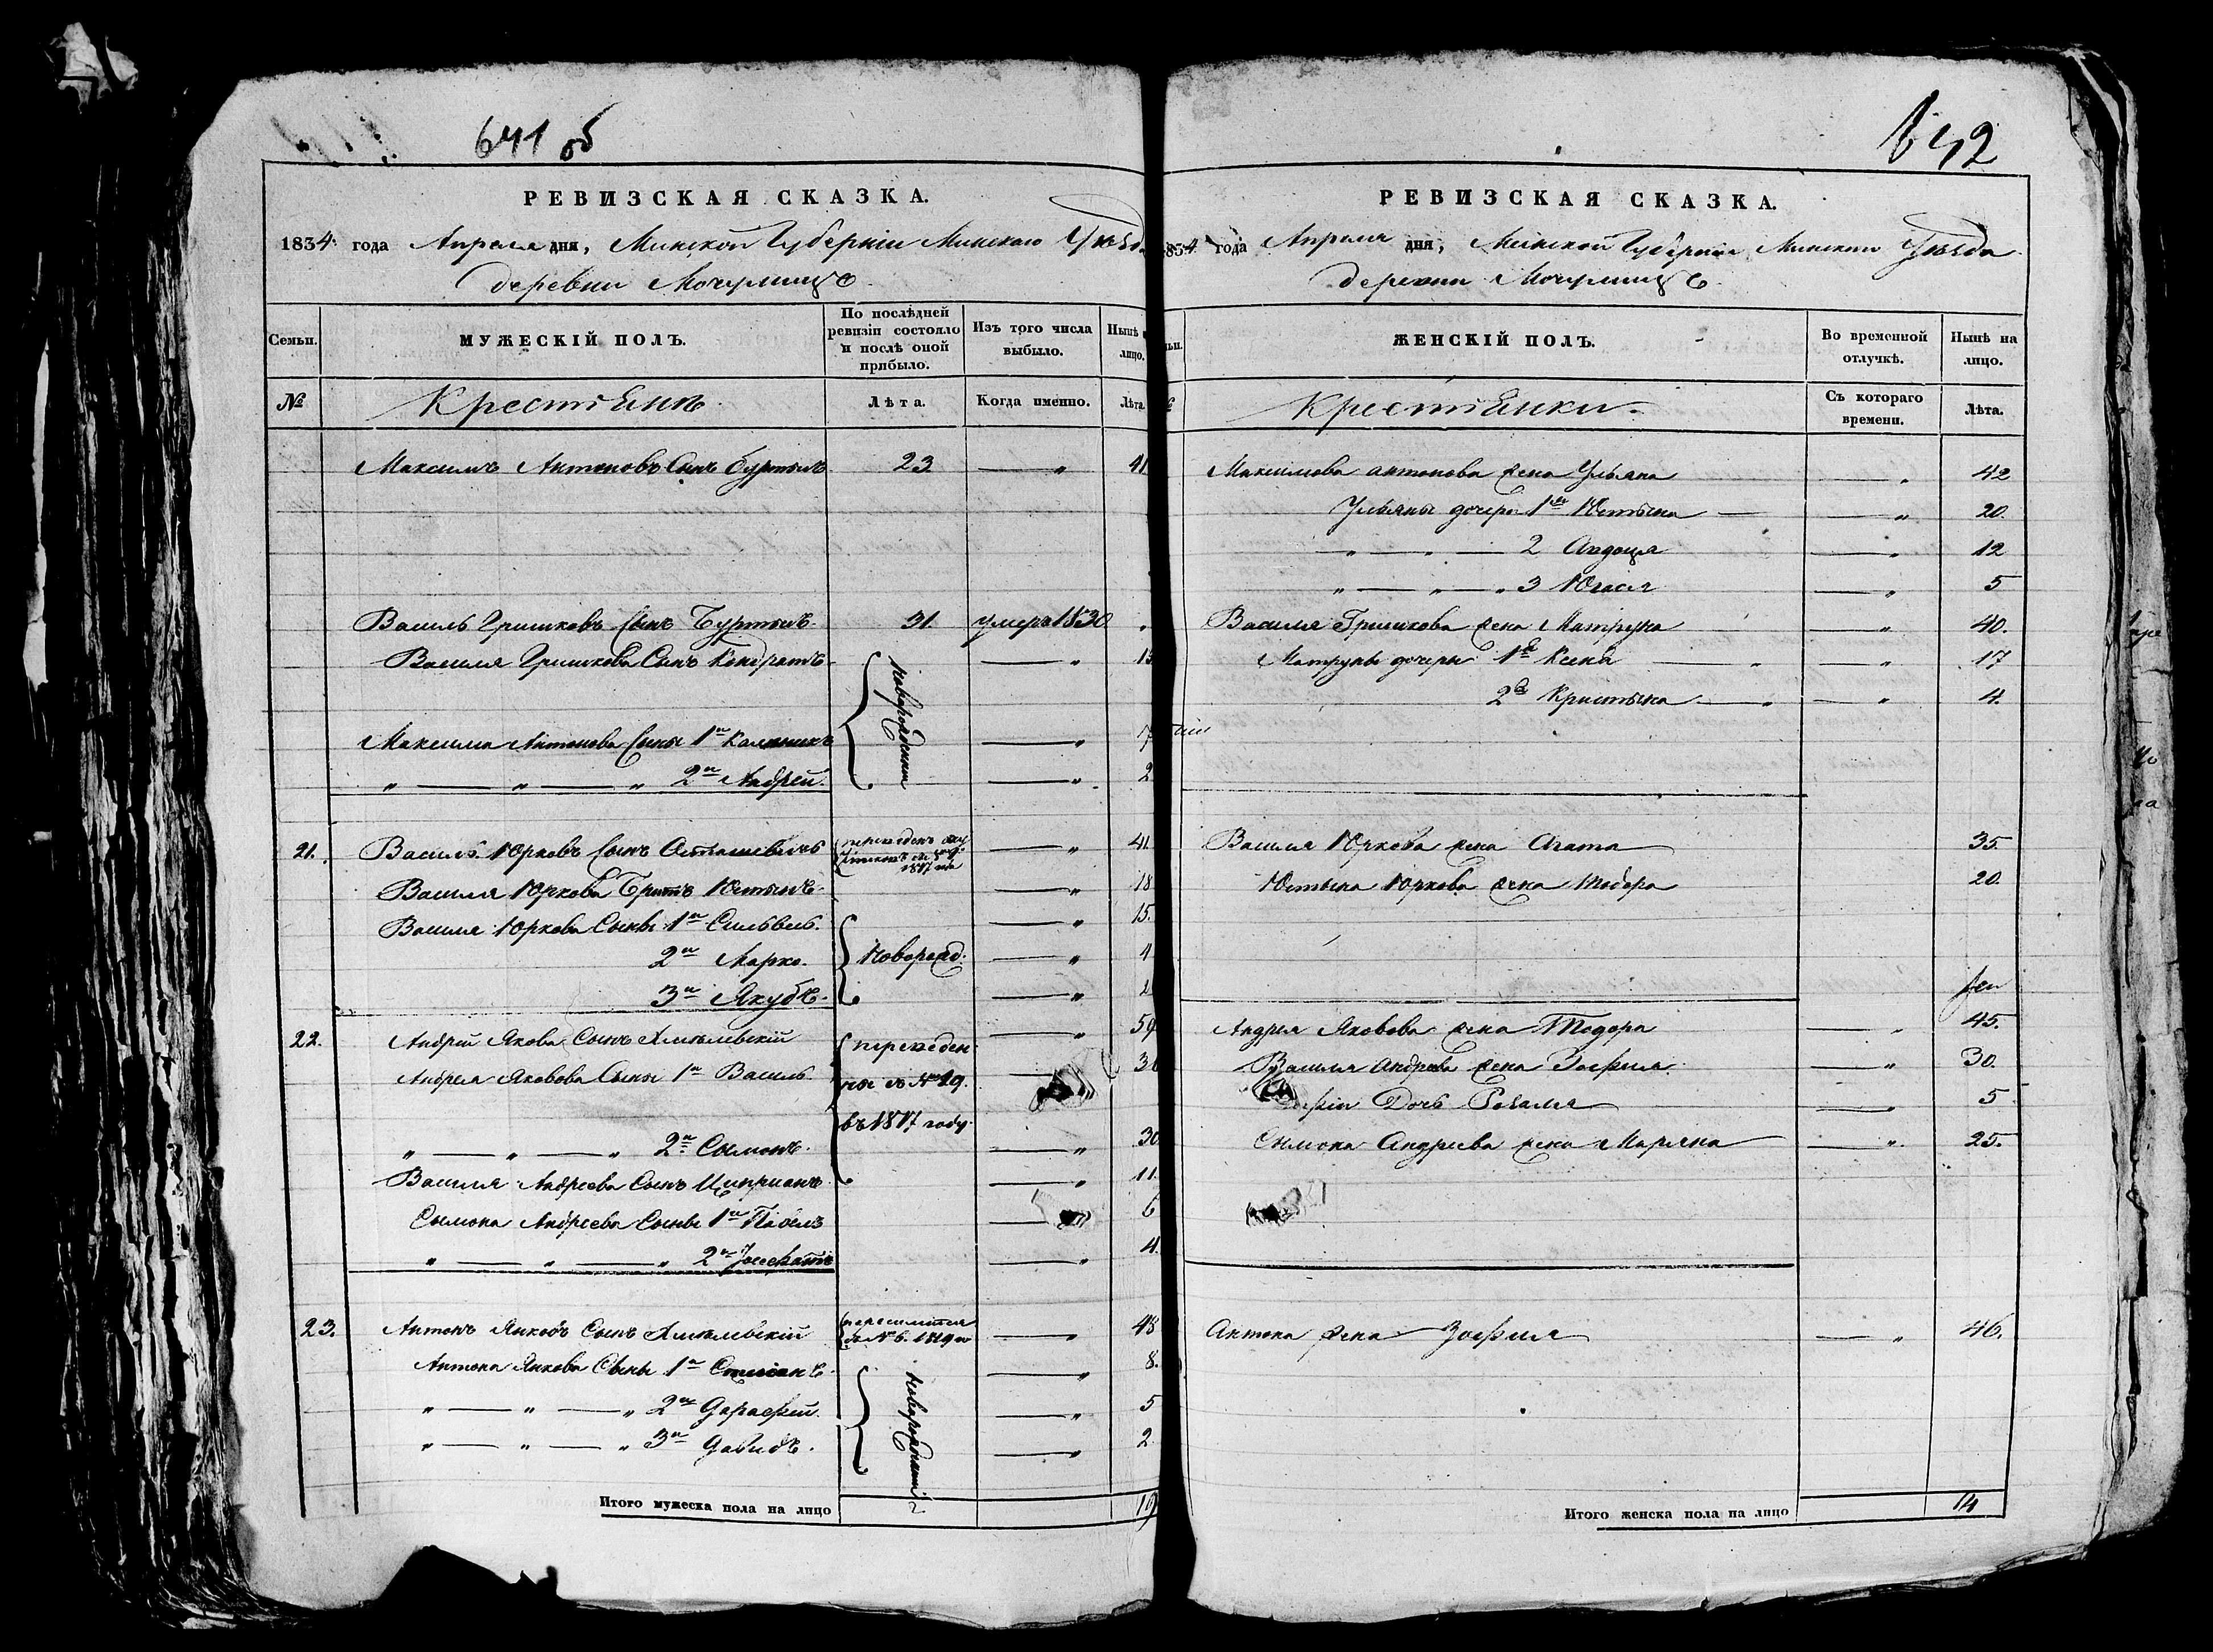 641 об
РЕВИЗСКАЯ СКАЗКА.
1834 года Апреля дня, Минской Губерніи Минскаго Уѣзда
деревни
Семьи.
МУЖЕСКІЙ ПОЛЪ.
По послѣдней ревизіи состояло и послѣ оной прибыло.
Изъ того числа выбыло.
Нынѣ
лицо.
№
Крестьянъ
Лѣта.
Когда именно.
Лѣта.
Максимъ Антоновъ Сынъ Буртыль 23 — " 41
Василь Гришковъ Сынъ Буртыль 31 умеръ 1830
Василя Гришкова Сынъ Кондратъ — "
новорожденны
Максима Антонова Сыны 1й — "
" — " — " 2й Андрей — " 2
21. Василь Юрковъ Сынъ — " 41
1817
Василя Юркова Братъ Юстынъ — " 18
Василя Юркова Сыны 1й — " 15.
2й Марко. Новорожд. — " 4
3й Якубъ. — " 2
22. Андрей Якова Сынъ Хмѣлевскій переведен — " 59
Андрея Яковова Сыны 1й Василь ны съ № 29. —
въ 1817 году
" — " — " 2й Сымонъ. — " 30
Василя Андреева Сынъ Циприанъ — " 11.
Сымона Андреева Сыны 1й Павелъ — " 6
" — " — " 2й — " 4.
23. Антонъ Янковъ Сынъ Хмѣлевскій — " 48
Антона Янкова Сыны 1й Стефанъ — " 8.
" — " — " 2й Дарафей — " 5
" — " — " 3й Давидъ. — " 2
Итого мужеска пола на лицо 19
642
РЕВИЗСКАЯ СКАЗКА.
834 года Апреля дня, Минской Губерніи Минскаго Уѣзда
деревни
ЖЕНСКІЙ ПОЛЪ.
Во временной отлучкѣ.
Нынѣ на лицо.
Крестьянки.
Съ котораго времени.
Лѣта.
Максимова антонова жена Ульяна — " 42
Ульяны дочери 1я Юстына — " 20.
" — " — 2 Авдоця — " 12
" — " — " 3 — " 5
Василя Гришкова жена Матруна — " 40.
Матруны дочери 1я Ксеня — " 17
2я Кристына — " 4.
Василя Юркова жена Агата 35.
Юстына Юркова жена Тодора 20.
Андрея Яковова жена Тодора — " 45.
Василя Андреева жена Зофия — " 30.
Дочь Розалия — " 5
Сымона Андреева жена Марьяна — " 25.
Антона жена Зофия — " 46.
Итого женска пола на лицо 14